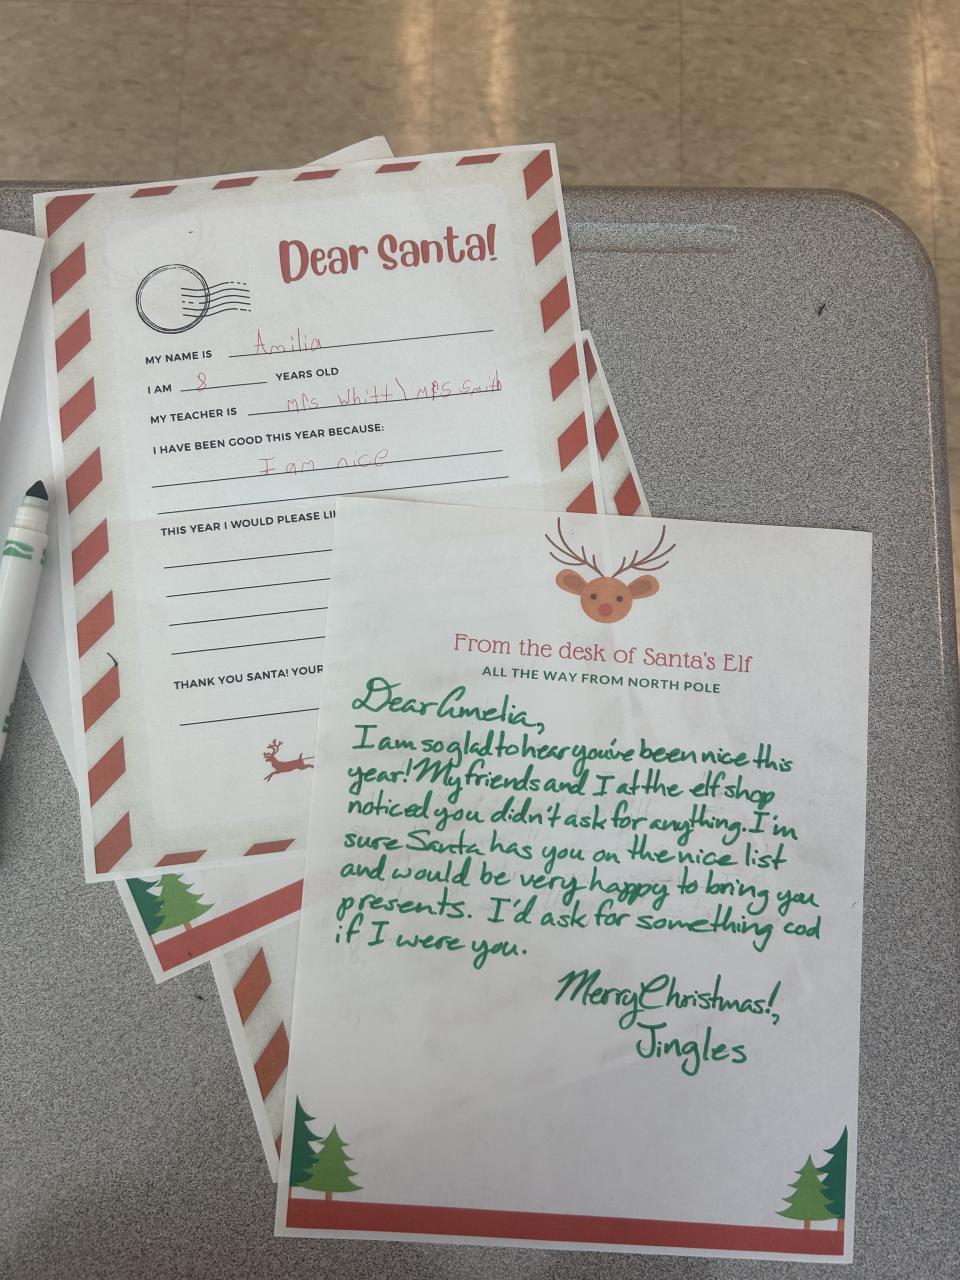 Dear Santa!
MY NAME IS Amilia
I AM 8 YEARS OLD
MY TEACHER IS Mrs Whitt) Mrs Smith
I HAVE BEEN GOOD THIS YEAR BECAUSE:
I am nice
THIS YEAR I WOULD PLEASE LI
THANK YOU SANTA! YOUR
From the desk of Santa's Elf
ALL THE WAY FROM NORTH POLE
Dear Amelia,
I am so glad to hear you've been nice this
year! My friends and I at the elf shop
noticed you didn't ask for anything. I'm
sure Santa has you on the nice list
and would be very happy to bring you
presents. I'd ask for something cool
if I were you.
Merry Christmas!,
Jingles